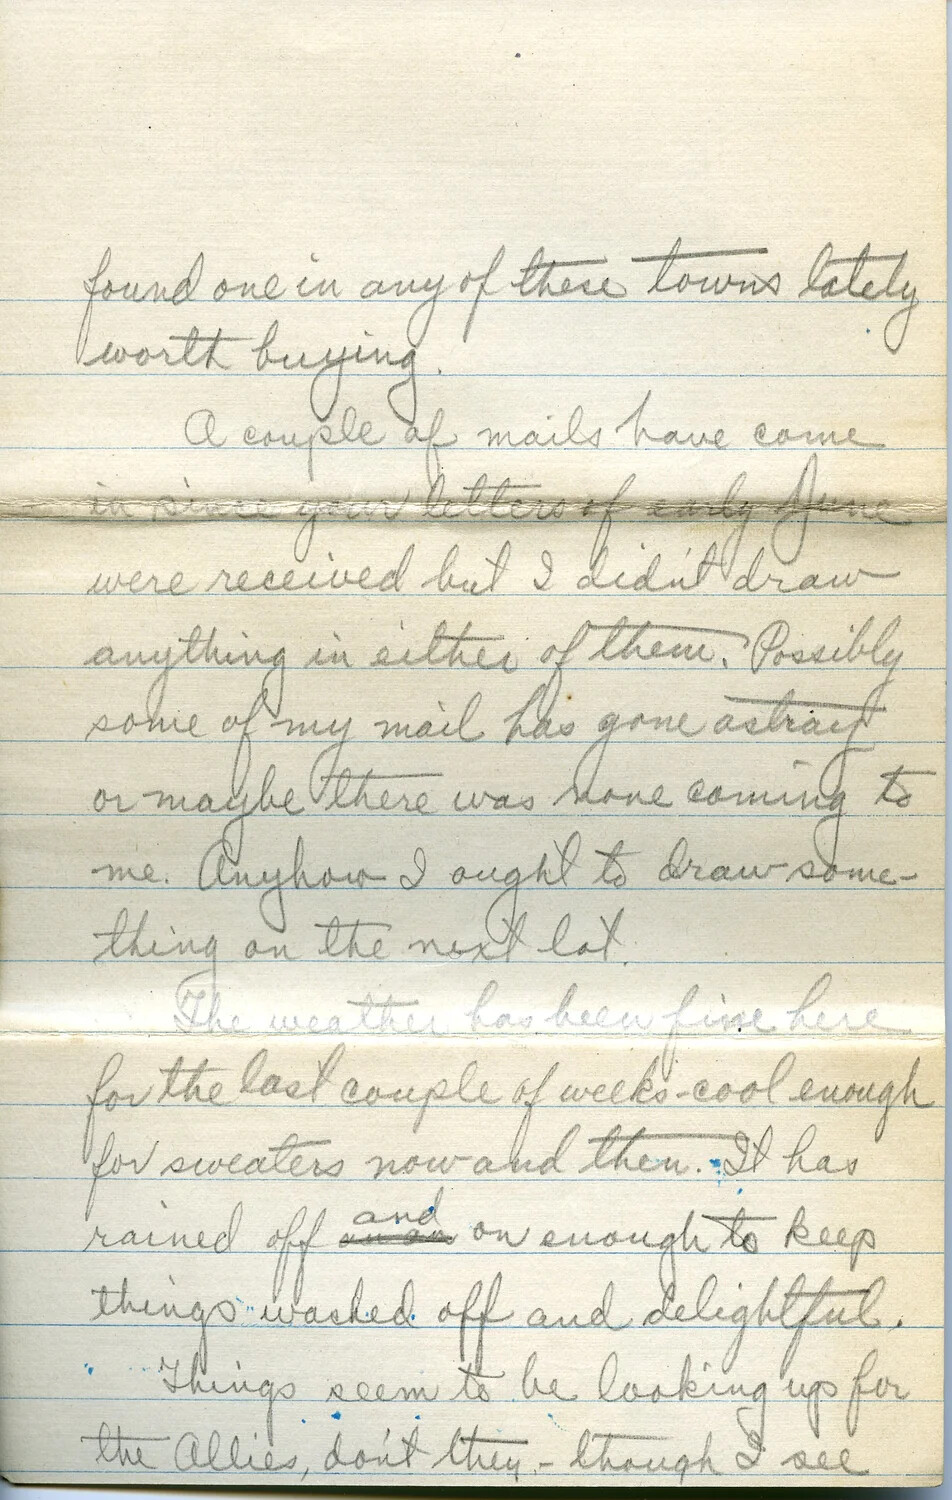 found one in any of these towns lately
worth buying.
A couple of mails have come
in since your letters of early June
were received but I didn't draw
anything in either of them. Possibly
some of my mail has gone astray
or maybe there was none coming to
me. Anyhow I ought to draw some-
thing on the next lot.
The weather has been fine here
for the last couple of weeks - cool enough
for sweaters now and then. It has
rained off and on enough to keep
things washed off and delightful.
Things seem to be looking up for
the Allies, don't they - though I see